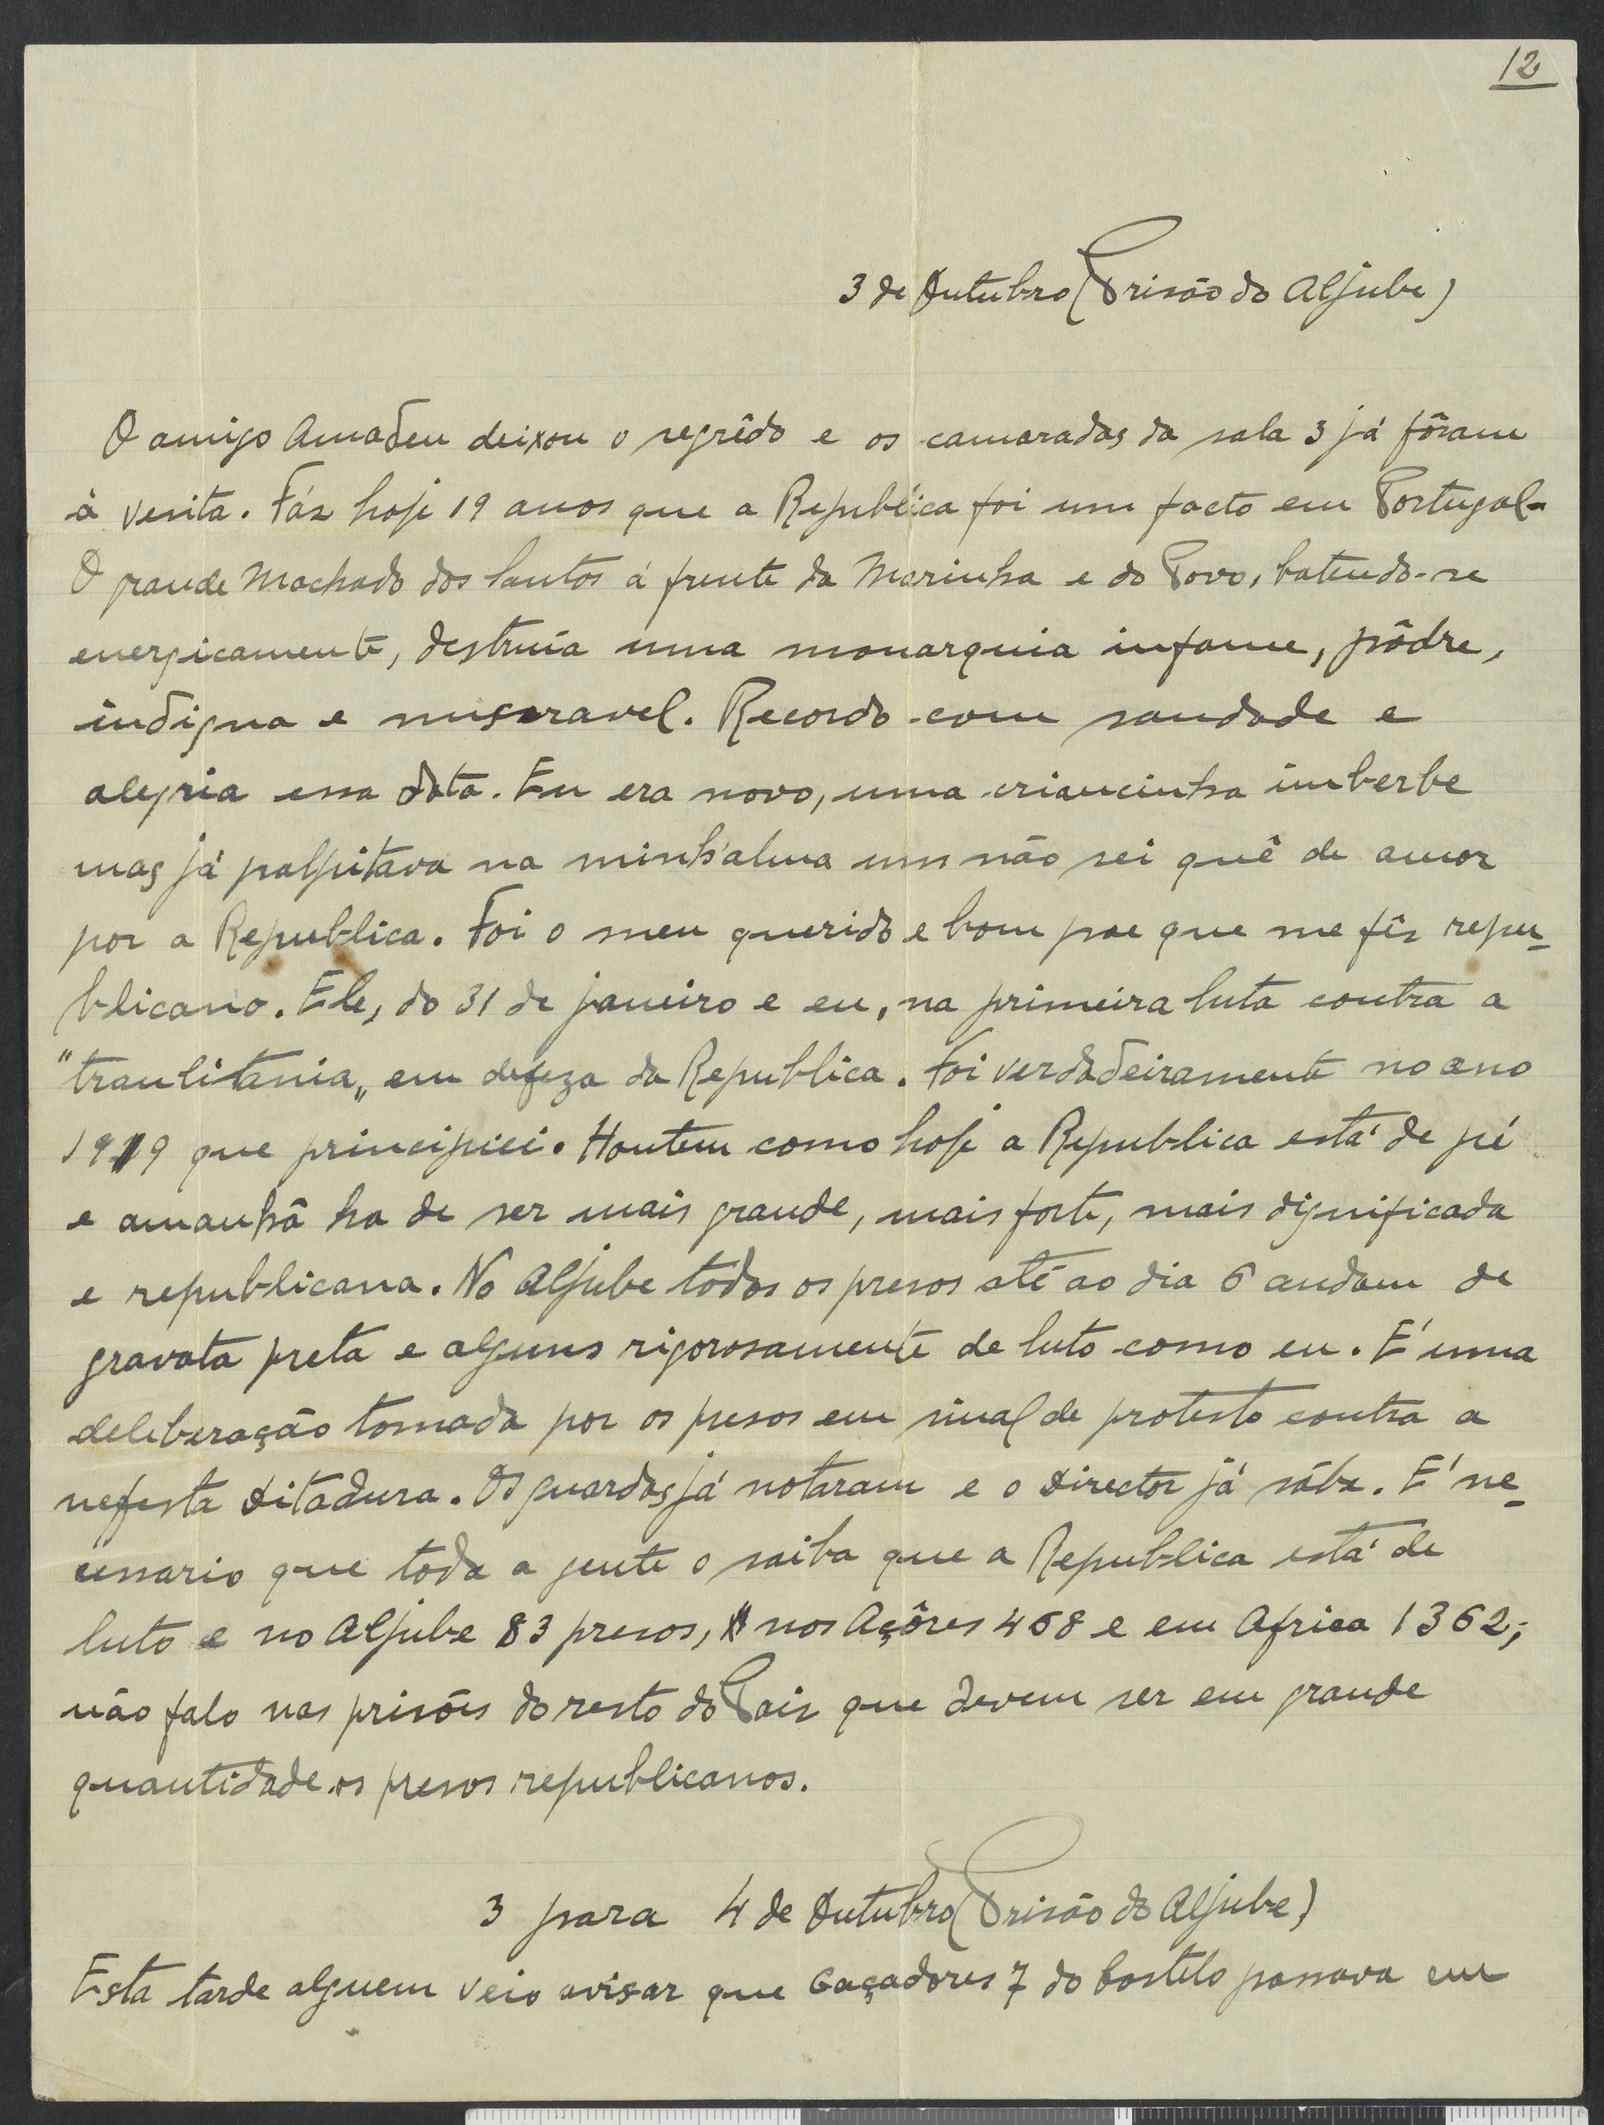 12
3 de Outubro (Prisão do Aljube)
O amigo Amadeu deixou o segrêdo e os camaradas da sala 3 já fôram
à vesita. Fáz hoje 19 anos que a República foi um facto em Portugal.
O grande Machado dos Santos á frente da Marinha e do Povo, batendo-se
energicamente, destruía uma monarquia infame, pôdre,
indigna e miseravel. Recordo com saudade e
alegria essa data. Eu era novo, uma criancinha imberbe
mas já palpitava na minh'alma um não sei quê de amor
por a Republica. Foi o meu querido e bom pae que me fês repu-
blicano. Ele, do 31 de janeiro e eu, na primeira luta contra a
"traulitania„ em defeza da Republica. Foi verdadeiramente no ano
1919 que principiei. Hontem como hoje a Republica está de pé
e amanhã ha de ser mais grande, mais forte, mais dignificada
e republicana. No Aljube todos os presos até ao dia 6 andam de
gravata preta e alguns rigorosamente de luto como eu. E' uma
deliberação tomada por os presos em sinal de protesto contra a
nefasta Ditadura. Os guardas já notaram e o Director já sábe. E' ne-
cessario que toda a gente o saiba que a Republica está de
luto e no Aljube 83 presos, nos Açôres 468 e em Africa 1362;
não falo nas prisões do resto do Pais que devem ser em grande
quantidade os presos republicanos.
3 para 4 de Outubro (Prisão do Aljube)
Esta tarde alguem veio avisar que Caçadores 7 do Castelo passava em